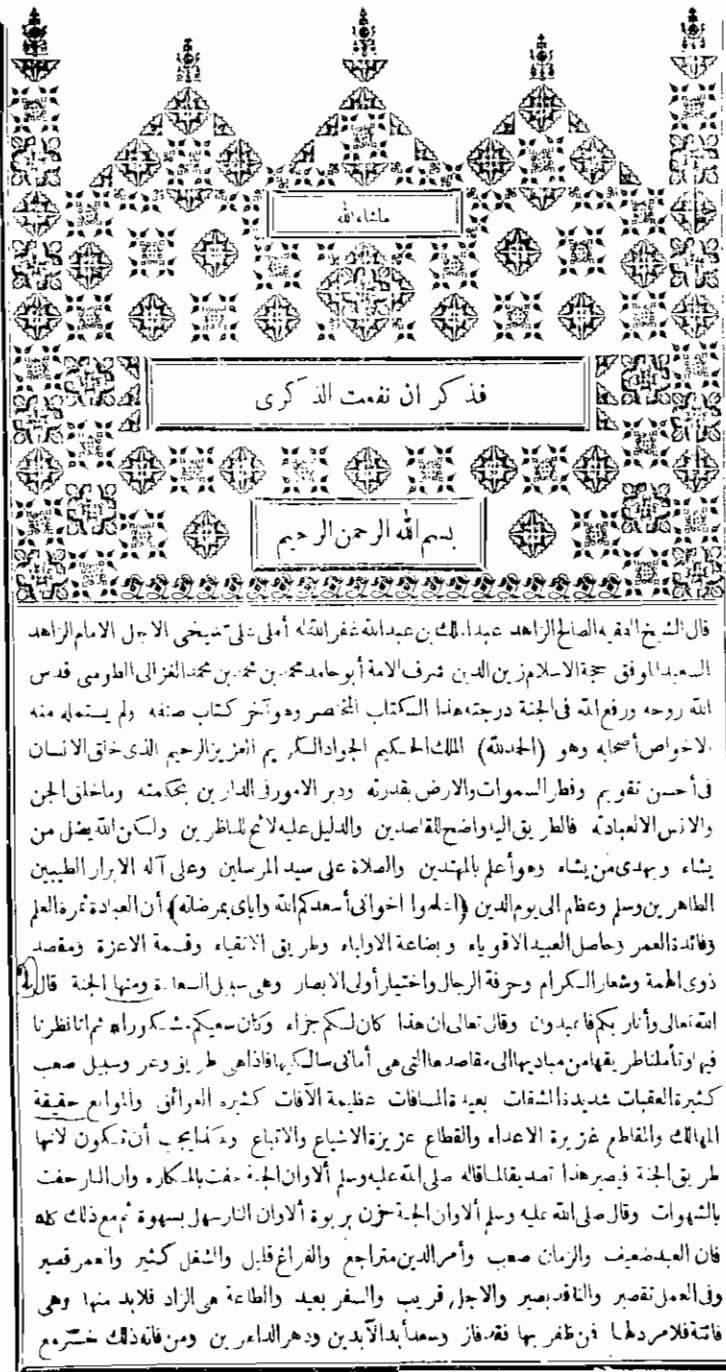 ماشاء الله
فذكر ان نفعت الذكرى
بسم الله الرحمن الرحيم
قال الشيخ الفقيه الصالح الزاهد عبد الملك بن عبد الله غفر الله له أملى على شيخى الاجل الامام الزاهد
السعيد الموفق حجة الاسلام زين الدين شرف الامة أبو حامد محمد بن محمد بن محمد الغزالى الطوسى قدس
الله روحه ورفع الله فى الجنة درجته هذا الكتاب المختصر وهو آخر كتاب صنفه ولم يستمله منه
الا خواص أصحابه وهو (الحمد لله) الملك الحكيم الجواد الكريم العزيز الرحيم الذى خلق الانسان
فى أحسن تقويم وفطر السموات والارض بقدرته ودبر الامور فى الدارين بحكمته وما خلق الجن
والانس الا لعبادته فالطريق اليه واضح للقاصدين والدليل عليه لائح للناظرين ولكن الله يضل من
يشاء ويهدى من يشاء وهو أعلم بالمهتدين والصلاة على سيد المرسلين وعلى آله الابرار الطيبين
الطاهرين وسلم وعظم الى يوم الدين (اعلموا اخوانى أسعدكم الله واياى بمرضاته) أن العبادة ثمرة العلم
وفائدة العمر وحاصل العبيد الاقوياء وبضاعة الاولياء وطريق الاتقياء وقسمة الاعزة ومقصد
ذوى الهمة وشعار الكرام وحرفة الرجال واختيار أولى الابصار وهى سبيل السعادة ومنها الجنة قال
الله تعالى وأنا ربكم فاعبدون وقال تعالى ان هذا كان لكم جزاء وكان سعيكم مشكورا ثم انا نظرنا
فيها وتأملنا طريقها من مباديها الى مقاصدها التى هى أمانى سالكيها فاذا هى طريق وعر وسبيل صعب
كثيرة العقبات شديدة المشقات بعيدة المسافات عظيمة الآفات كثيرة العوائق والموانع خفية
المهالك والقاطع غزيرة الاعداء والقطاع عزيزة الاشياع والاتباع وهكذا يجب أن تكون لانها
طريق الجنة فيصير هذا تصديقا لما قاله صلى الله عليه وسلم ألا وان الجنة حفت بالمكاره وان النار حفت
بالشهوات وقال صلى الله عليه وسلم ألا وان الجنة حزن بربوة ألا وان النار سهل بسهوة ثم مع ذلك كله
فان العبد ضعيف والزمان صعب وأمر الدين متراجع والفراغ قليل والشغل كثير والعمر قصير
وفى العمل تقصير والناقد بصير والاجل قريب والسفر بعيد والطاعة هى الزاد فلا بد منها وهى
فائتة فلا مرد لها فمن ظفر بها فقد فاز وسعد أبد الآبدين ودهر الداهرين ومن فاته ذلك خسر مع